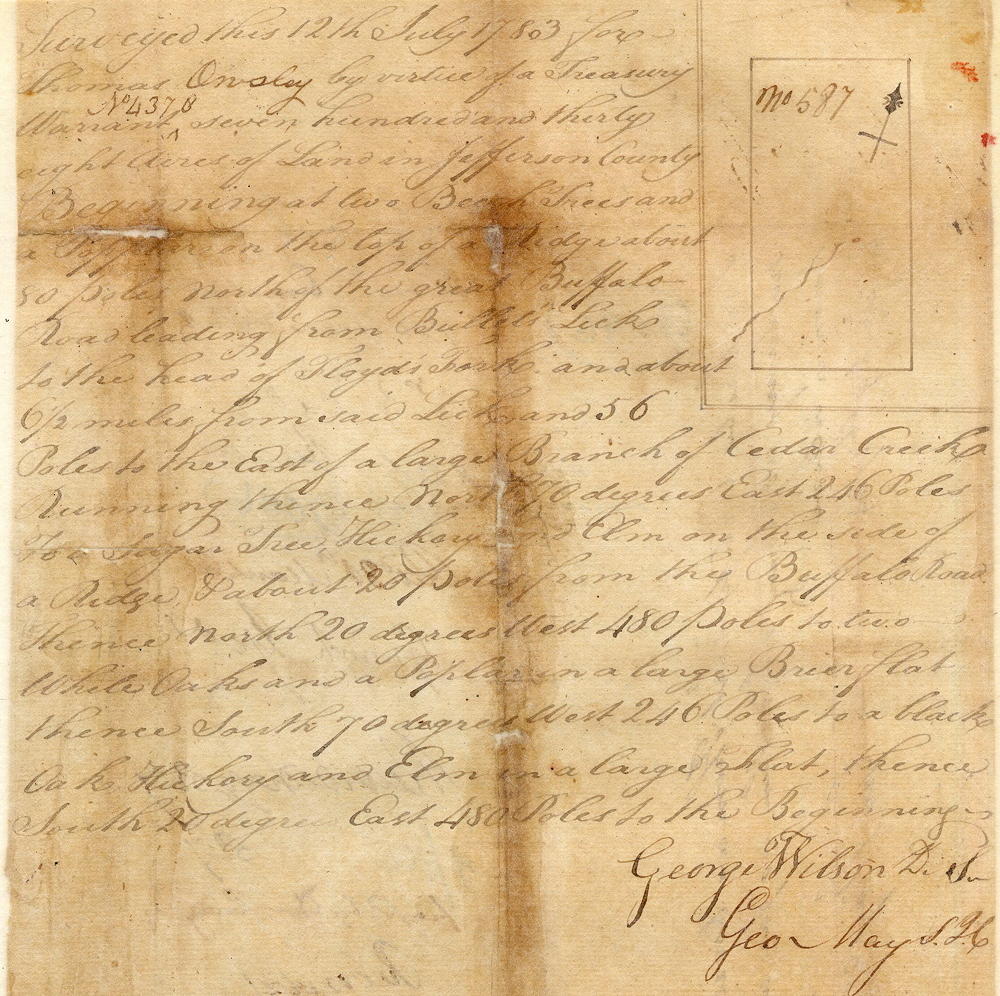 Surveyed this 12th July 1783 for
Thomas Owsley by virtue of a Treasury
No 4378
Warrant, seven hundred and thirty
eight Acres of Land in Jefferson County
Beginning at two Beech Trees and
a Poplar on the top of a Ridge about
80 poles North of the great Buffalo
Road leading from Bullets Lick
to the head of Floyds Fork and about
6 1/2 miles from said Lick and 56
Poles to the East of a large Branch of Cedar Creek
Running thence North 70 degrees East 246 Poles
To a Sugar Tree, Hickory and Elm on the side of
a Ridge, & about 20 poles from the Buffalo Road
thence North 20 degrees West 480 poles to two
White Oaks and a Poplar in a large Brier flat
thence South 70 degrees West 246 Poles to a black
Oak Hickory and Elm in a large Flat, thence
South 20 degrees East 480 Poles to the Beginning
George Wilson D. S.
Geo May S.
No 587